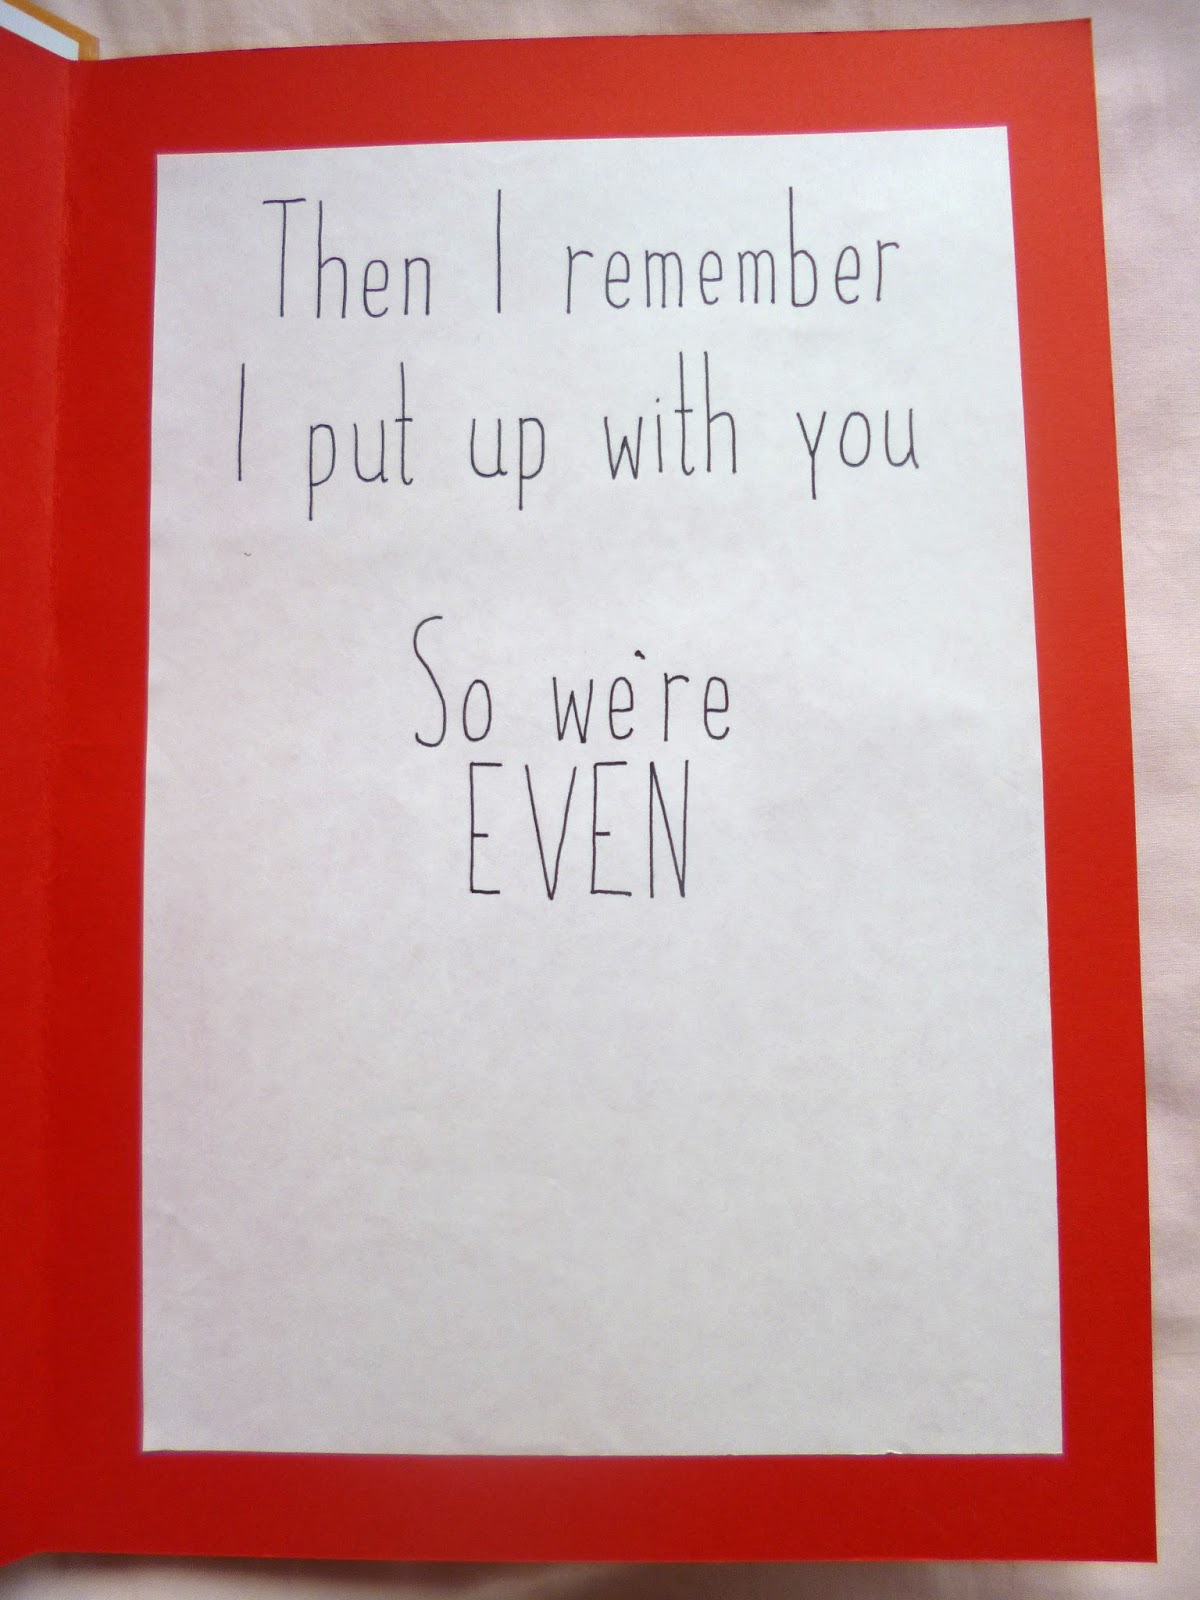 Then I remember
I put up with you
So we're
EVEN